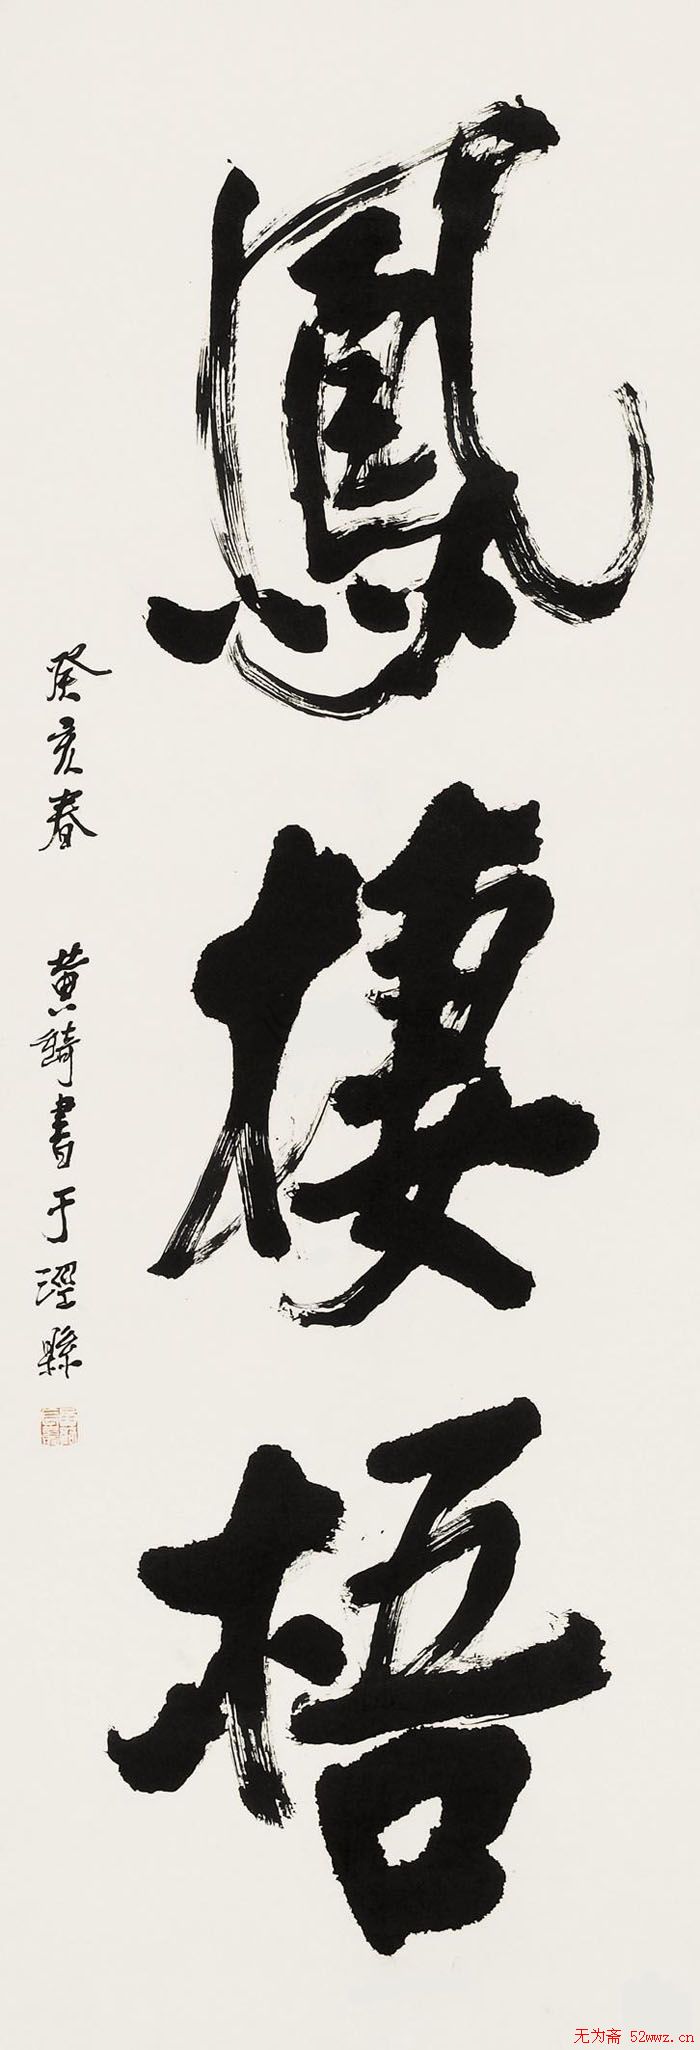 鳳棲梧
癸亥春 黄綺書于涇縣
无为斋 52wwz.cn